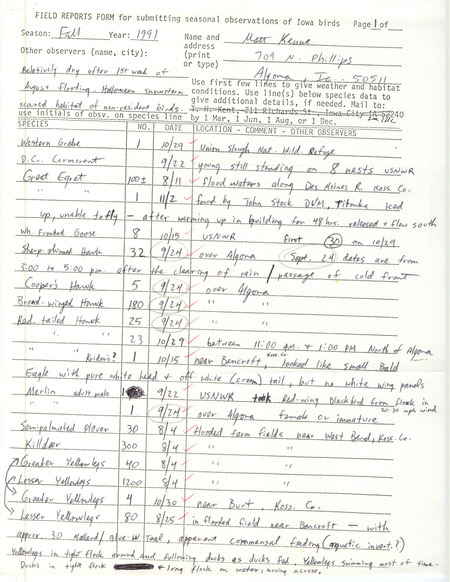 FIELD REPORTS FORM for submitting seasonal observations of Iowa birds Page 1 of
Season: Fall Year: 1991 Name and address (print or type) Matt Kenne
Other observers (name, city): 709 N. Phillips
Algona, Ia. 50511
Relatively dry after 1st week of
August flooding. Halloween snowstorm
scoured habitat of non-resident birds.
Use first few lines to give weather and habitat
conditions. Use line(s) below species data to
give additional details, if needed. Mail to:
T. H. Kent, 211 Richards St., Iowa City IA 52240
use initials of obsv. on species line by 1 Mar, 1 Jun, 1 Aug, or 1 Dec.
SPECIES NO. DATE LOCATION - COMMENT - OTHER OBSERVERS
Western Grebe 1 10/29 Union Slough Nat. Wild. Refuge
D.C. Cormorant 9/22 young still standing on 8 nests USNWR
Great Egret 100± 8/11 flood waters along Des Moines R. Koss. Co.
" " 1 11/2 found by John Stock DVM, Titonka iced
up, unable to fly - after warming up in building for 48 hrs. released & flew south
Wh. Fronted Goose 8 10/15 USNWR first 30 on 10/29
Sharp-shinned Hawk 32 9/24 over Algona Sept. 24 dates are from
3:00 to 5:00 pm after the clearing of rain / passage of cold front
Cooper's Hawk 5 9/24 over Algona
Broad-winged Hawk 180 9/24 " "
Red-tailed Hawk 25 9/24 " "
" " 23 10/29 between 11:00 AM & 1:00 PM North of Algona
" " Krider's? 1 10/15 near Bancroft, Koss. Co. looked like small Bald
Eagle with pure white head & off white (cream) tail, but no white wing panels
Merlin adult male 1 9/22 USNWR took Red-wing Blackbird from flock in 20-30 mph wind
1 9/24 over Algona female or immature
Semipalmated Plover 30 8/4 flooded farm fields near West Bend, Koss. Co.
Killdeer 300 8/4 " "
Greater Yellowlegs 40 8/4 " "
Lesser Yellowlegs 1200 8/4 " "
Greater Yellowlegs 4 10/30 near Burt, Koss. Co.
Lesser Yellowlegs 80 8/25 in flooded field near Bancroft - with
approx. 30 Mallard/Blue-W. Teal, apparent commensal feeding (aquatic invert.?)
Yellowlegs in tight flock around and following ducks as ducks fed. Yellowlegs swimming most of time.
Ducks in tight flock & long flock on water, moving across.